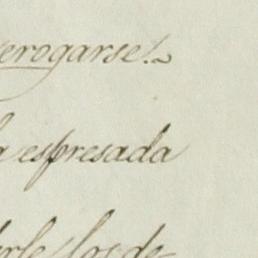 erogarse.
a espresada
rle los de